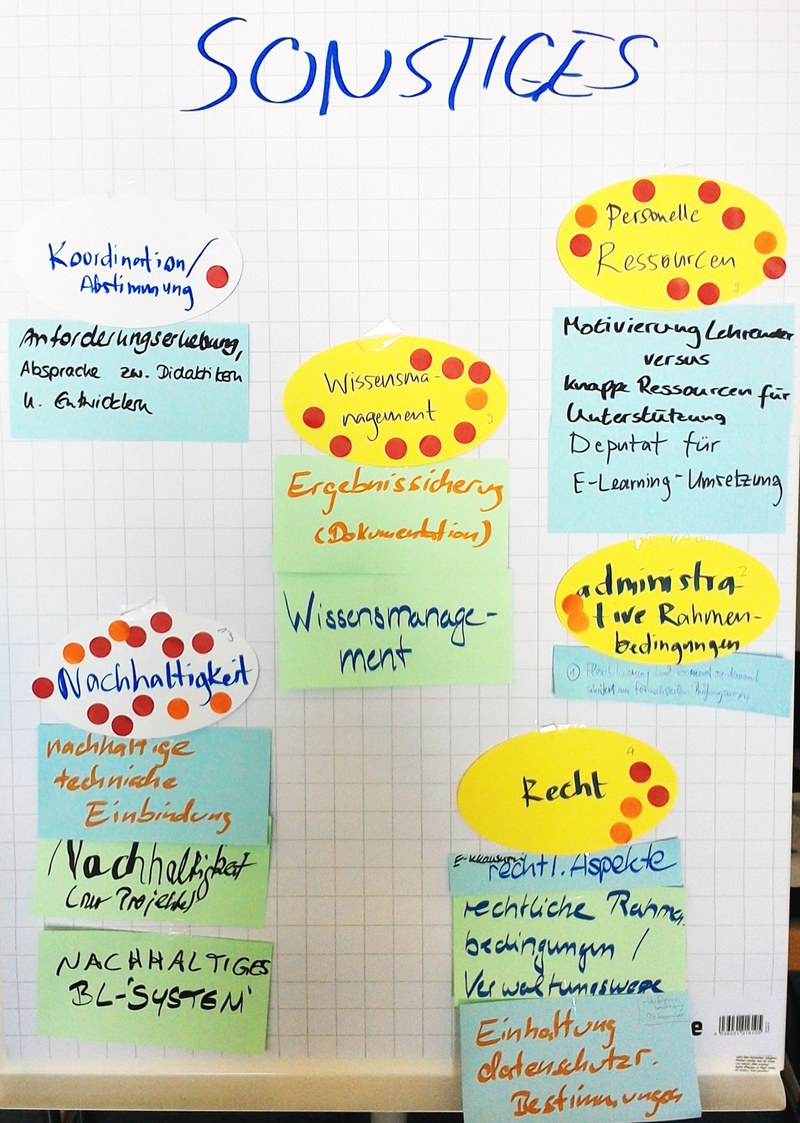 SONSTIGES
Koordination/
Abstimmung
Anforderungserhebung,
Absprache zw. Didaktikern
u. Entwicklern
Wissensma-
nagement
Ergebnissicherung
(Dokumentation)
Wissensmanage-
ment
Personelle
Ressourcen
Motivierung Lehrender
versus
knappe Ressourcen für
Unterstützung
Deputat für
E-Learning-Umsetzung
administra-
tive Rahmen-
bedingungen
Nachhaltigkeit
nachhaltige
technische
Einbindung
Nachhaltigkeit
(nur Projekte)
NACHHALTIGES
BL-"SYSTEM"
Recht
E-Klausuren
rechtl. Aspekte
rechtliche Rahm.
bedingungen /
Verwaltungswege
Einhaltung
datenschutzr.
Bestimmungen